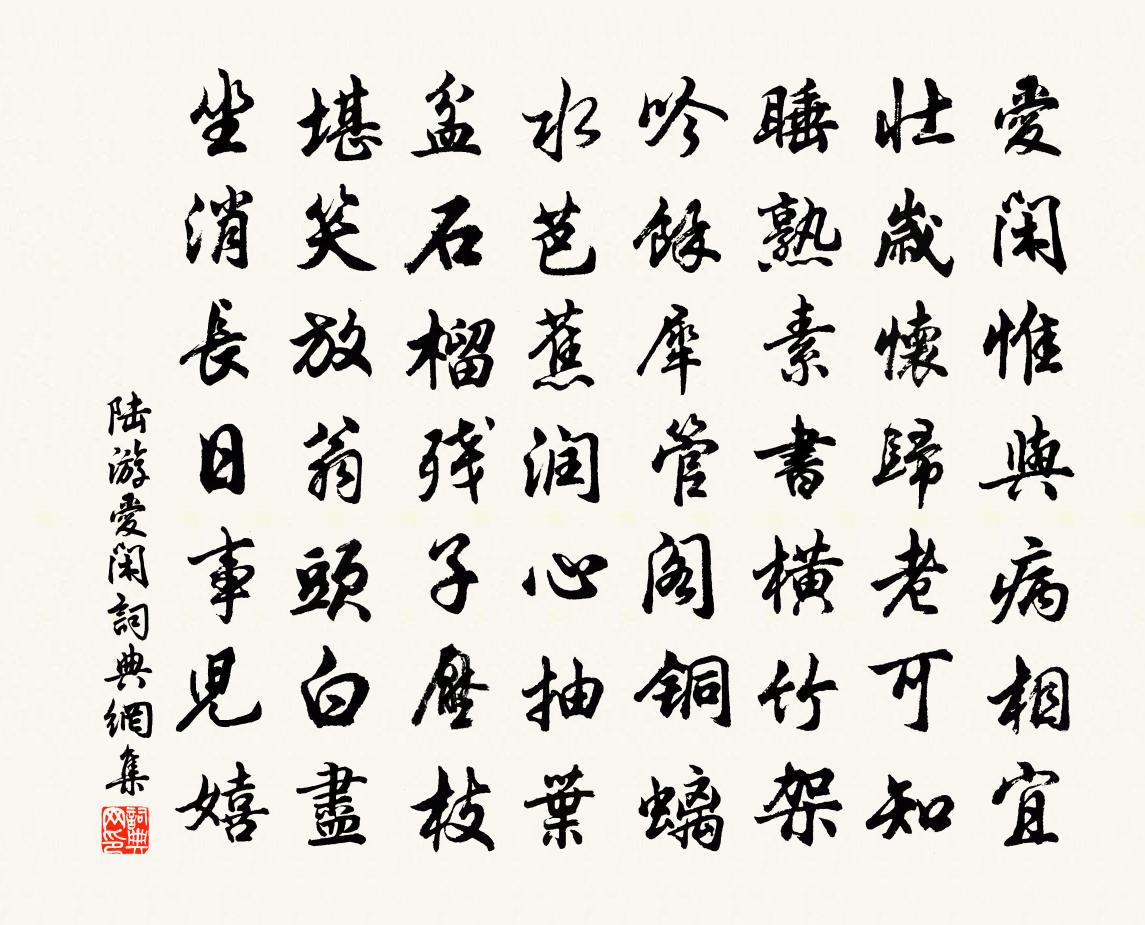 愛閑惟與病相宜
壮歳懷歸老可知
睡熟素書横竹架
吟餘犀管閣銅螭
水芭蕉润心抽葉
盆石榴残子壓枝
堪笑放翁頭白盡
坐消長日事兒嬉
陆游愛閑詞典網集
詞典网印